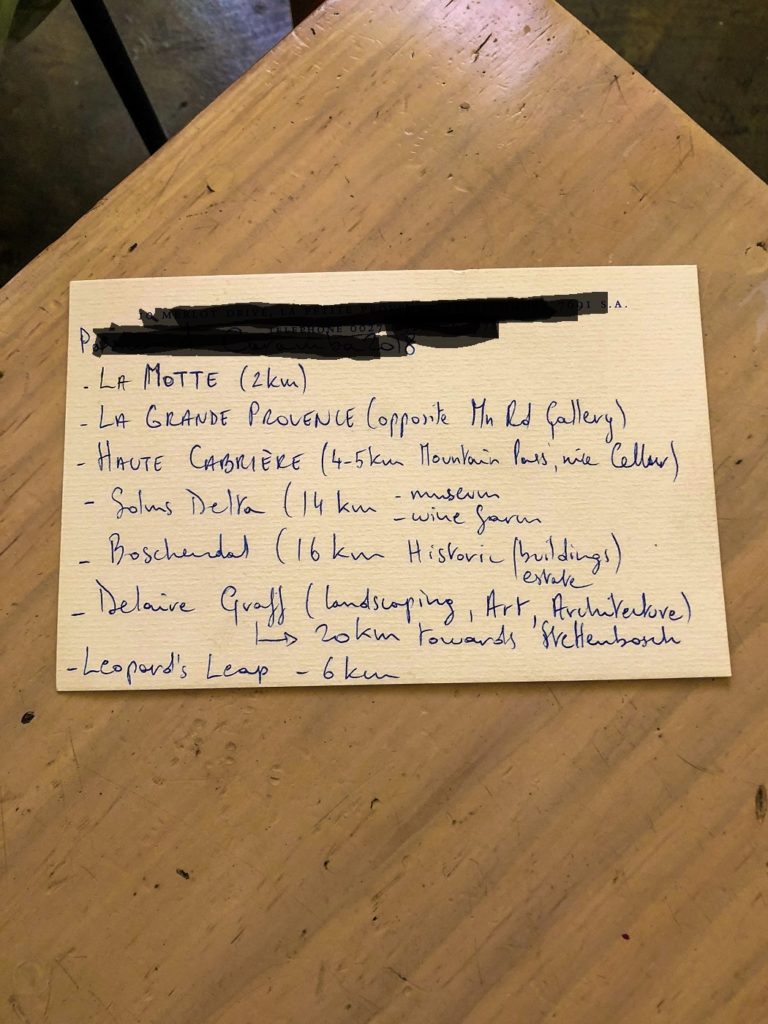 MERLOT DRIVE, LA PETITE S.A.
TELEPHONE
- LA MOTTE (2km)
- LA GRANDE PROVENCE (opposite Mn Rd Gallery)
- HAUTE CABRIÈRE (4-5km Mountain Pass, nice Cellar)
- Solms Delta (14 km - museum
- wine farm
- Boschendal (16 km Historic (buildings)
estate
- Delaire Graff (landscaping, Art, Architecture)
↳ 20km towards Stellenbosch
- Leopard's Leap - 6 km